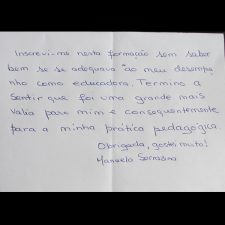 Inscrevi-me nesta formação sem saber
bem se se adequava "ao meu desempe
nho como educadora. Termino a
sentir que foi uma grande mais
valia para mim e consequentemente
para a minha prática pedagógica.
Obrigada, gostei muito!
Manuela